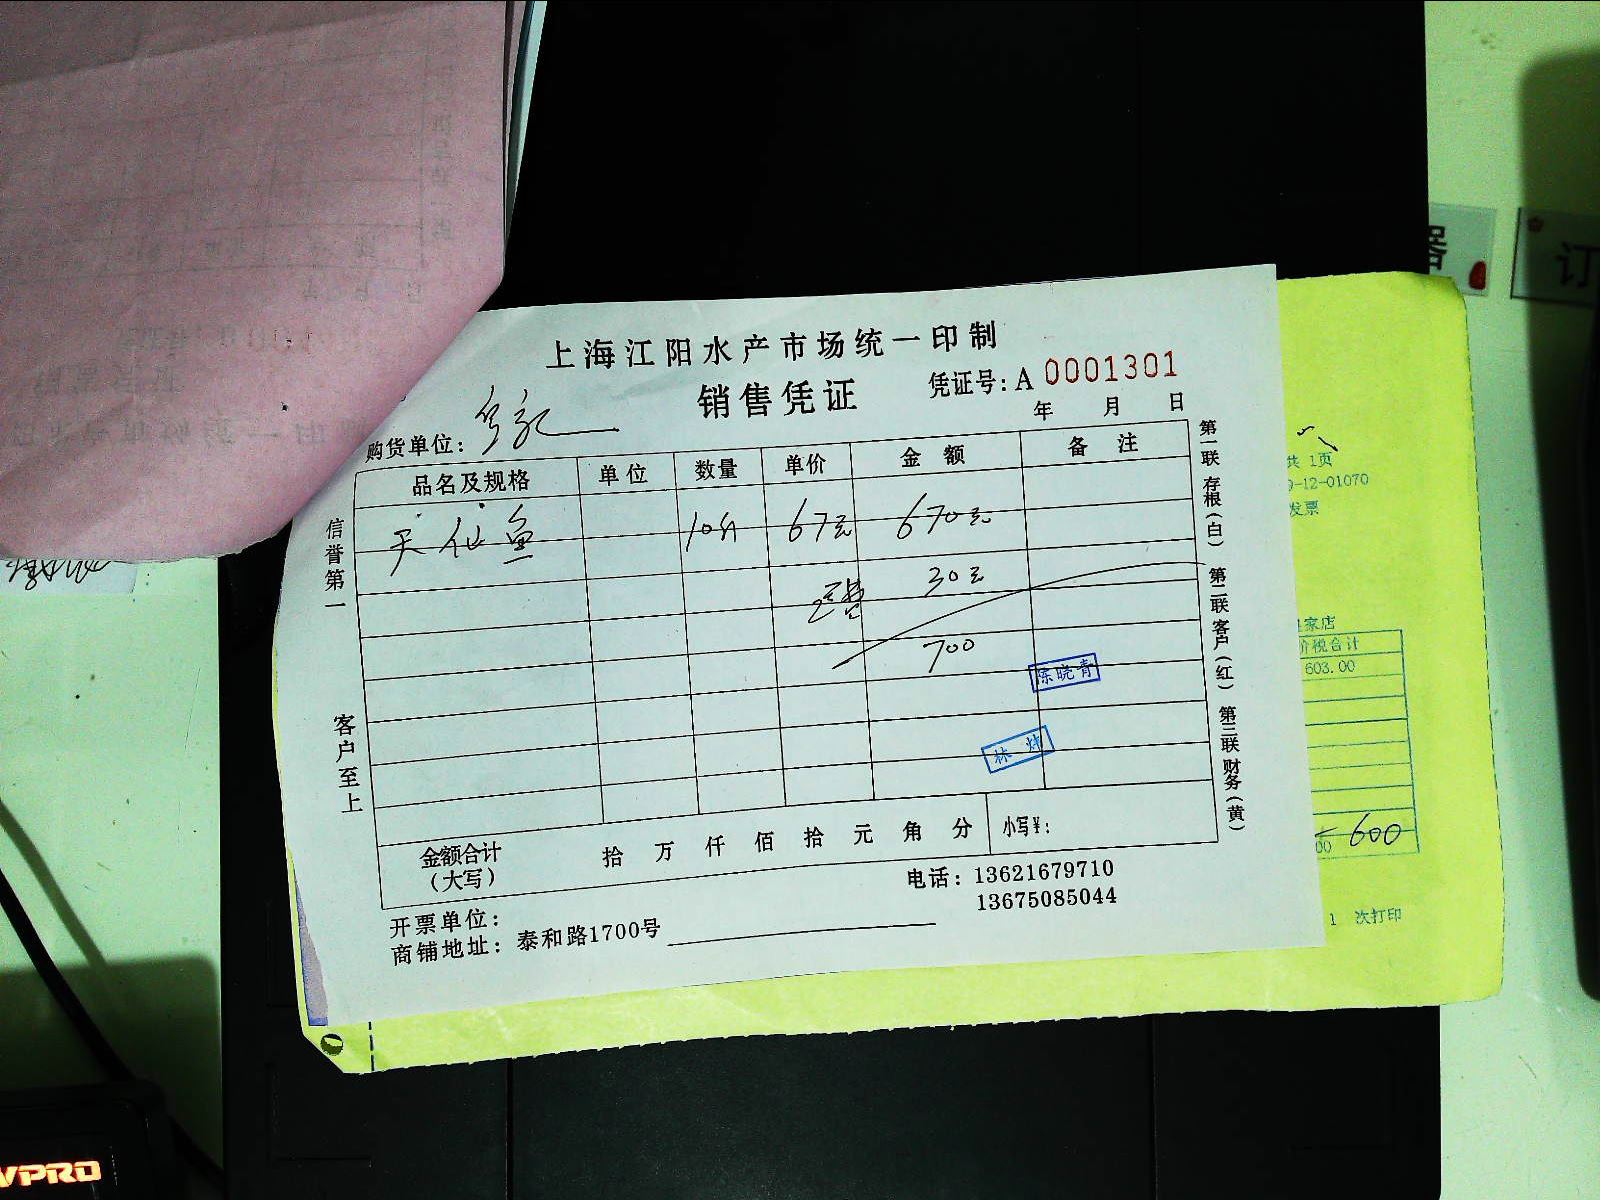 上海江阳水产市场统一印制
销售凭证
凭证号: A 0001301
年 月 日
购货单位:
品名及规格 单位 数量 单价 金额 备注
天仙鱼 10斤 67元 670元
运费 30元
700
陈晓青
林
金额合计(大写) 拾 万 仟 佰 拾 元 角 分 小写¥:
开票单位:
电话: 13621679710
13675085044
商铺地址: 泰和路1700号
信誉第一
客户至上
第一联 存根(白) 第二联 客户(红) 第三联 财务(黄)
共 1页
-12-01070
发票
家店
价税合计
603.00
600
00
1 次打印
器
订
VPRO